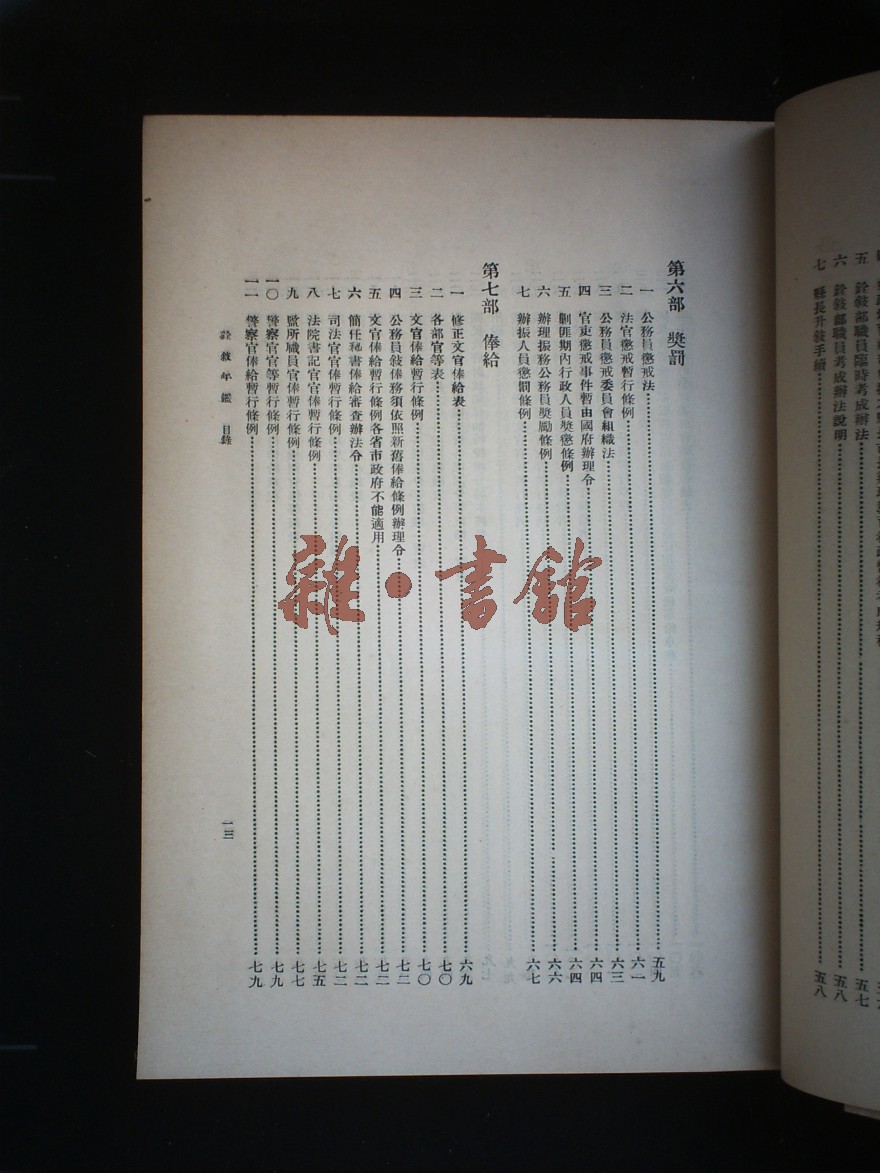 五 銓敘部職員臨時考成辦法 五七
六 銓敘部職員考成辦法說明 五八
七 縣長升敘手續 五八
第六部 獎罰
一 公務員懲戒法 五九
二 法官懲戒暫行條例 六一
三 公務員懲戒委員會組織法 六三
四 官吏懲戒事件暫由國府辦理令 六四
五 剿匪期內行政人員獎懲條例 六四
六 辦理振務公務員獎勵條例 六六
七 辦振人員懲罰條例 六七
第七部 俸給
一 修正文官俸給表 六九
二 各部官等表 七〇
三 文官俸給暫行條例 七〇
四 公務員敘俸務須依照新舊俸給條例辦理令 七二
五 文官俸給暫行條例各省市政府不能適用 七二
六 簡任秘書俸給審查辦法令 七二
七 司法官官俸暫行條例 七二
八 法院書記官官俸暫行條例 七五
九 監所職員官俸暫行條例 七七
一〇 警察官官等暫行條例 七九
一一 警察官俸給暫行條例 七九
銓敘年鑑 目錄
一三
雜·書館